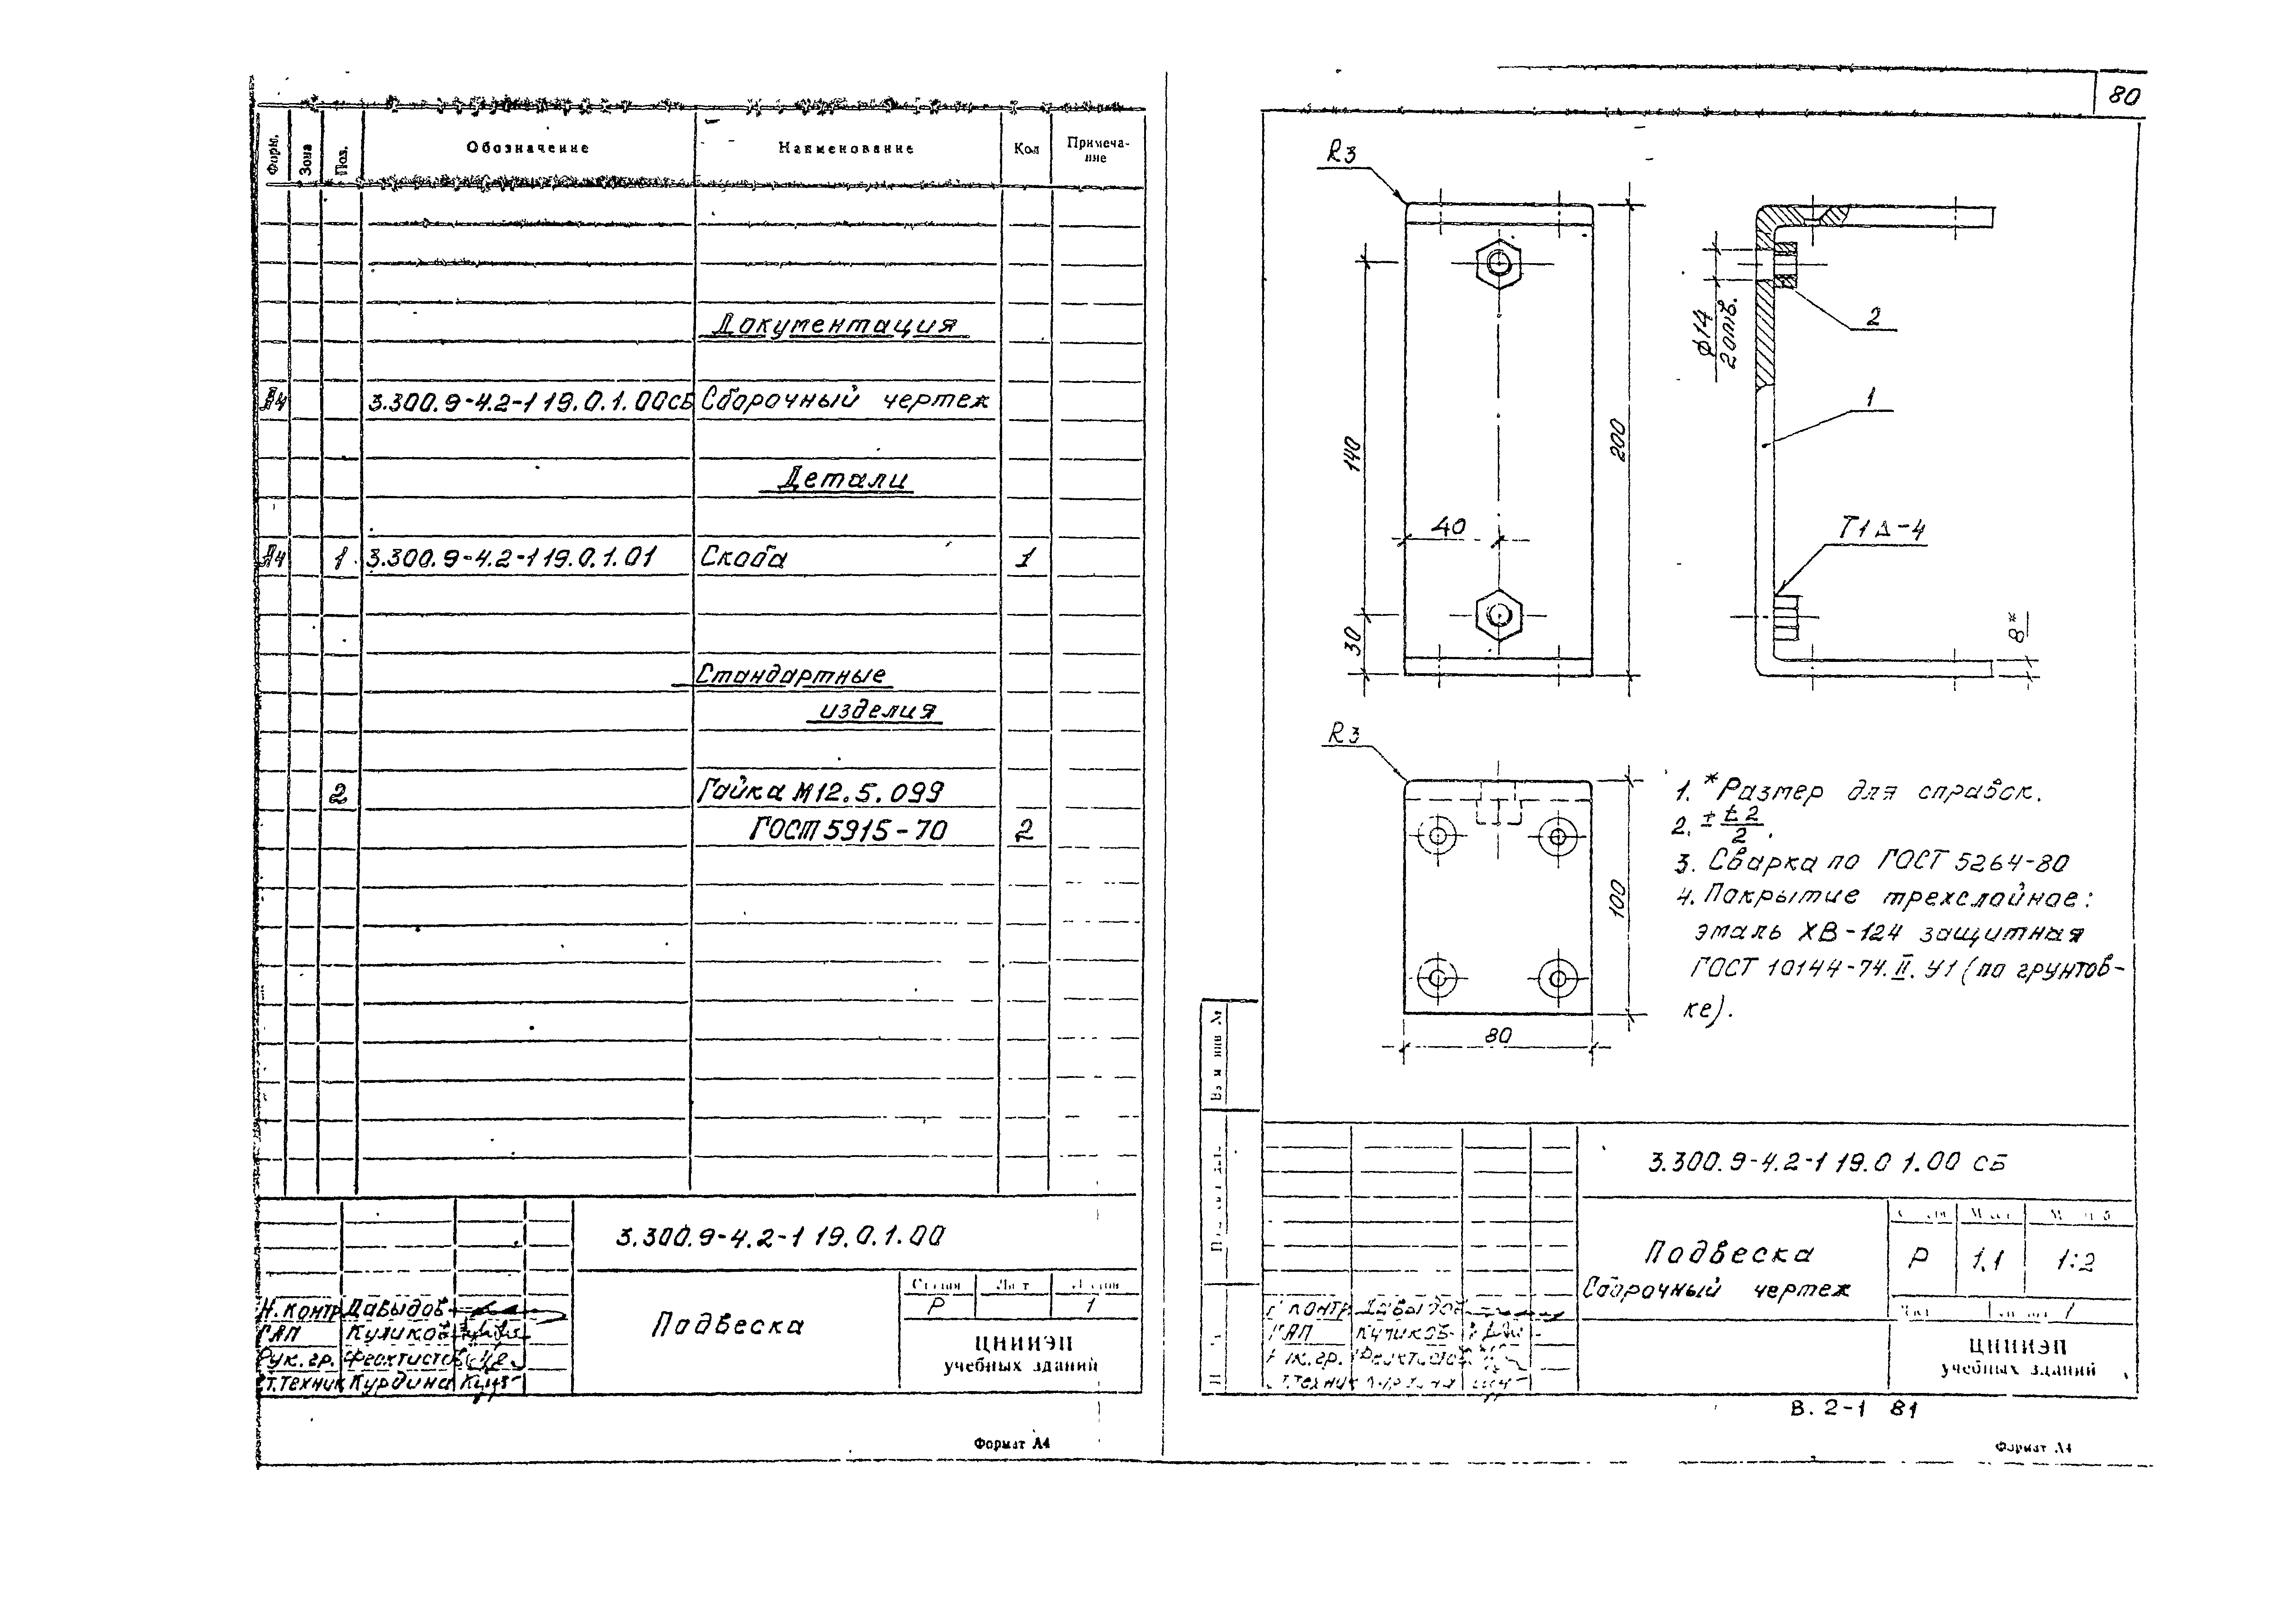 Форм.
Зона
Поз.
Обозначение
Наименование
Кол
Примеча-
ние
Документация
А4 3.300.9-4.2-1 19.0.1.00СБ Сборочный чертеж
Детали
А4 1 3.300.9-4.2-1 19.0.1.01 Скоба 1
Стандартные
изделия
2 Гайка М12.5.099
ГОСТ 5915-70 2
3.300.9-4.2-1 19.0.1.00
Н.контр Давыдов
ГАП Куликов
Рук.гр. Феоктистов
Ст.техник Курдина
Подвеска
Стадия Лист Листов
Р 1
ЦНИИЭП
учебных зданий
Формат А4
80
R3
140
30
40
200
ϕ14
2 отв.
2
1
Т1△-4
8*
R3
100
80
1. *Размер для справок.
2. ± t2/2.
3. Сварка по ГОСТ 5264-80
4. Покрытие трехслойное:
эмаль ХВ-124 защитная
ГОСТ 10144-74.II.У1 (по грунтов-
ке).
3.300.9-4.2-1 19.0 1.00 СБ
Подвеска
Сборочный чертеж
Р 1,1 1:2
1
контр Давыдов
ГАП Куликов
Рук.гр.
ст.техник
ЦНИИЭП
учебных зданий
В. 2-1 81
Формат А4